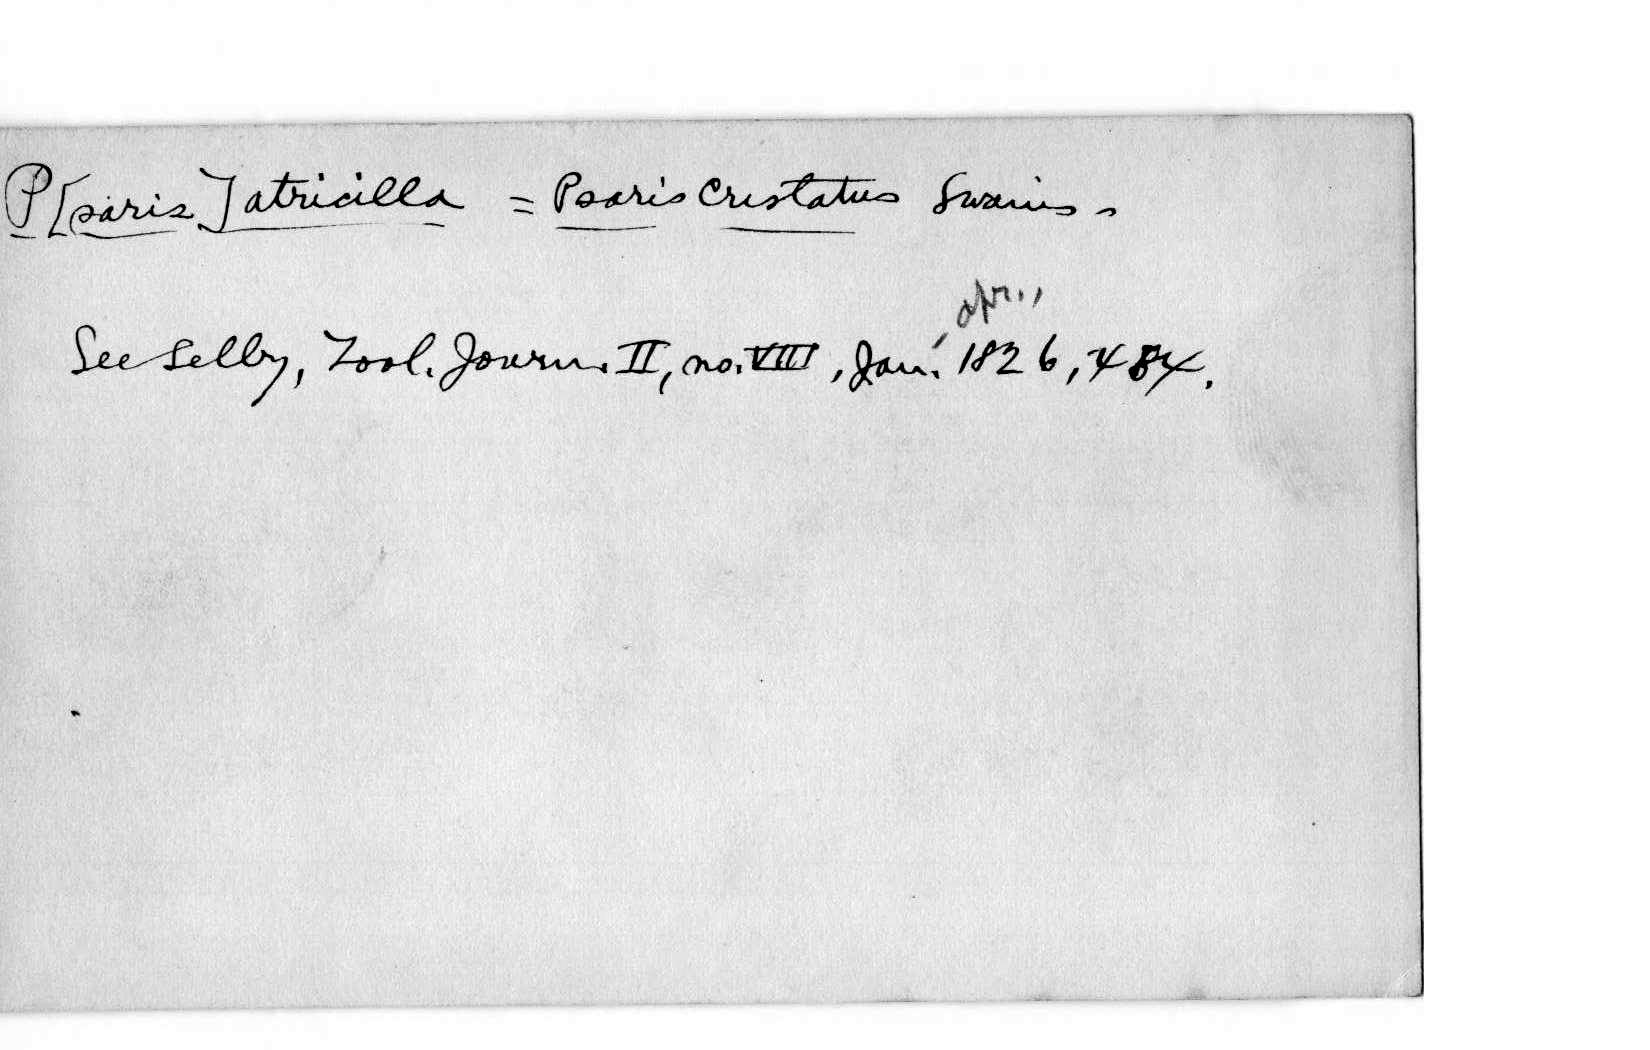 P[saris] atricilla = Psaris cristatus Swains.
apr.,
See Selby, Zool. Journ. II, no. VIII, Jan. 1826, 484.